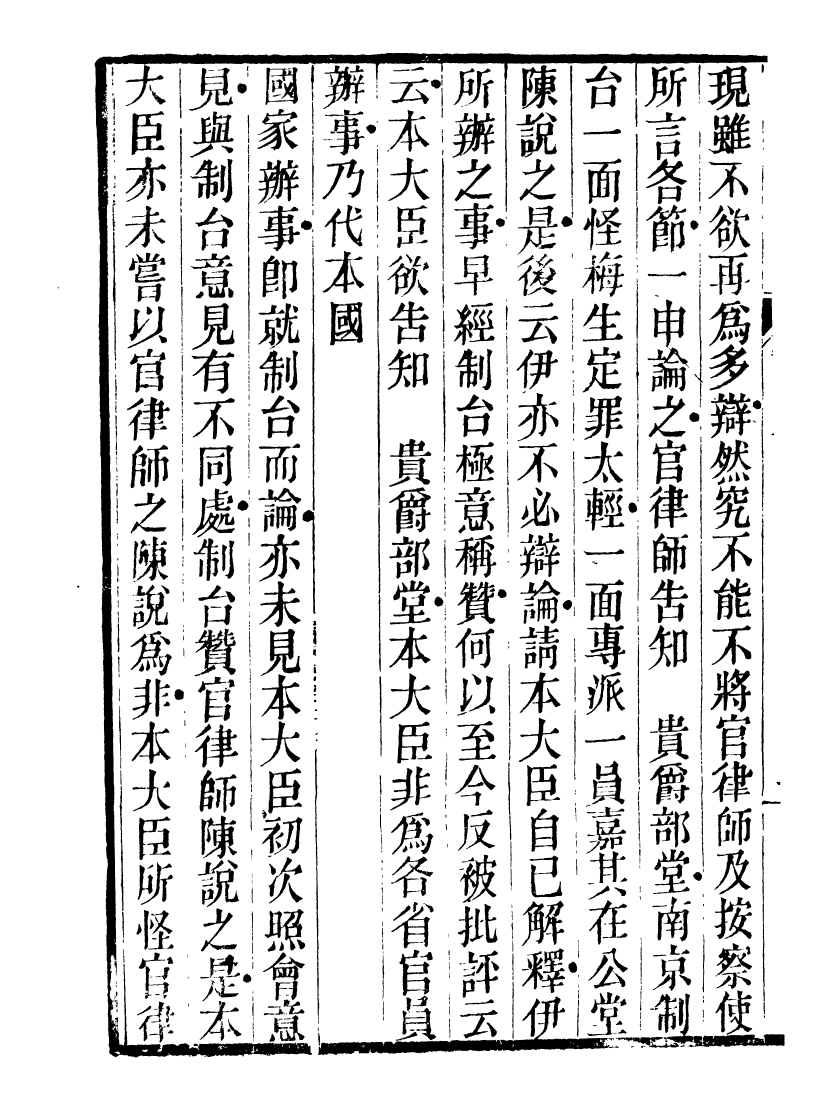 現雖不欲再爲多辯然究不能不將官律師及按察使
所言各節一申論之官律師告知　貴爵部堂南京制
台一面怪梅生定罪太輕一面專派一員嘉其在公堂
陳說之是後云伊亦不必辯論請本大臣自已解釋伊
所辦之事早經制台極意稱贊何以至今反被批評云
云本大臣欲告知　貴爵部堂本大臣非爲各省官員
辦事乃代本國
國家辦事卽就制台而論亦未見本大臣初次照會意
見與制台意見有不同處制台贊官律師陳說之是本
大臣亦未嘗以官律師之陳說爲非本大臣所怪官律